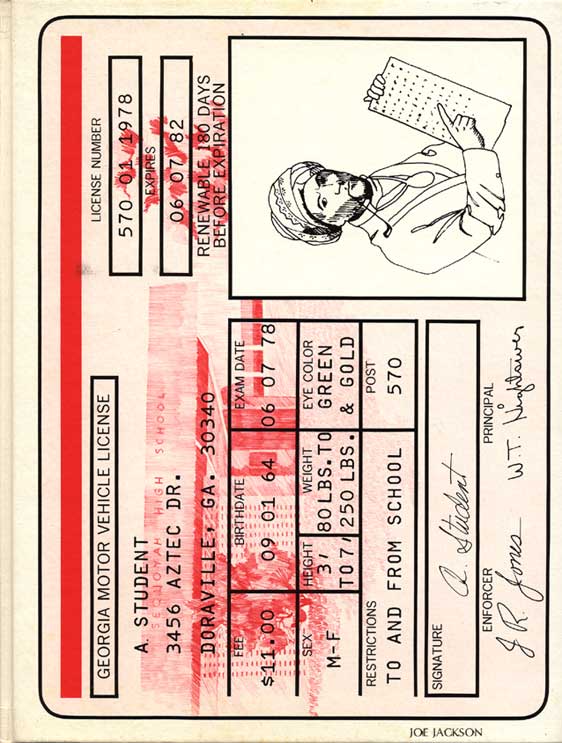 GEORGIA MOTOR VEHICLE LICENSE
LICENSE NUMBER
570 01 1978
EXPIRES
06 07 82
RENEWABLE 180 DAYS
BEFORE EXPIRATION
A. STUDENT
SEQUOYAH HIGH SCHOOL
3456 AZTEC DR.
DORAVILLE, GA. 30340
FEE
$11.00
BIRTHDATE
09 01 64
EXAM DATE
06 07 78
SEX
M-F
HEIGHT
3'
TO 7'
WEIGHT
80 LBS. TO
250 LBS.
EYE COLOR
GREEN
& GOLD
RESTRICTIONS
TO AND FROM SCHOOL
POST
570
SIGNATURE
A. Student
ENFORCER
J R. Jones
PRINCIPAL
W.T. Hightower
JOE JACKSON